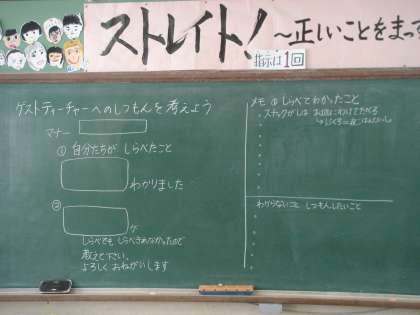 ストレイト！～正しいことをまっす
指示は1回
ゲストティーチャーへのしつもんを考えよう
マナー
① 自分たちが しらべたこと
わかりました
②
が
しらべても しらべきれなかったので
教えて下さい。
よろしく おねがいします
メモ ① しらべてわかったこと
・スナックがしは お皿にわけてたべる
わからないこと しつもんしたいこと